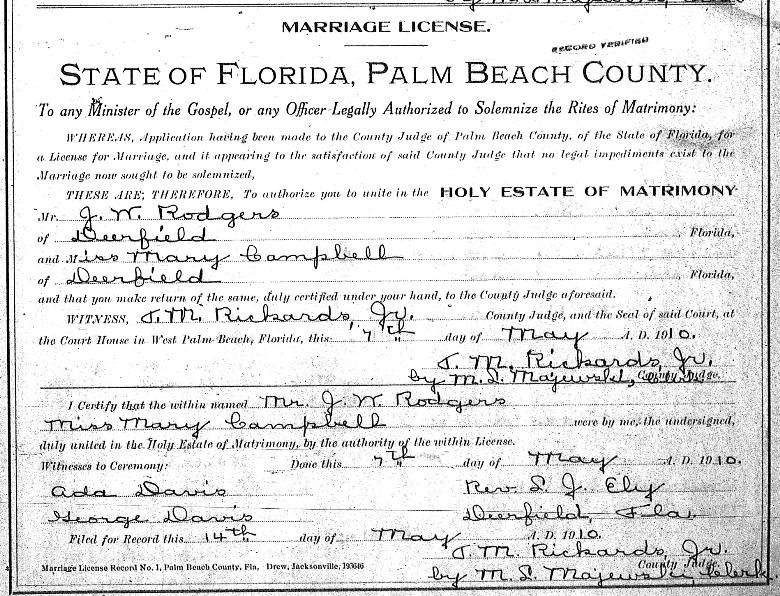 MARRIAGE LICENSE.
RECORD VERIFIED
STATE OF FLORIDA, PALM BEACH COUNTY.
To any Minister of the Gospel, or any Officer Legally Authorized to Solemnize the Rites of Matrimony:
WHEREAS, Application having been made to the County Judge of Palm Beach County, of the State of Florida, for
a License for Marriage, and it appearing to the satisfaction of said County Judge that no legal impediments exist to the
Marriage now sought to be solemnized,
THESE ARE, THEREFORE, To authorize you to unite in the HOLY ESTATE OF MATRIMONY
Mr. J. W. Rodgers
of Deerfield Florida,
and Miss Mary Campbell
of Deerfield Florida,
and that you make return of the same, duly certified under your hand, to the County Judge aforesaid.
WITNESS, J. M. Rickards, Jr. County Judge, and the Seal of said Court, at
the Court House in West Palm Beach, Florida, this 7th day of May A. D. 1910.
J. M. Rickards, Jr.
County Judge.
by M. L. Majewski,
I Certify that the within named Mr. J. W. Rodgers
Miss Mary Campbell were by me, the undersigned,
duly united in the Holy Estate of Matrimony, by the authority of the within License.
Witnesses to Ceremony: Done this 7th day of May A. D. 1910.
Ada Davis Rev. L. J. Ely
George Davis Deerfield, Fla.
Filed for Record this 14th day of May A. D. 1910.
J. M. Rickards, Jr.
County Judge.
Marriage License Record No. 1, Palm Beach County, Fla. Drew, Jacksonville, 193646
by M. L. Majewski, Clerk